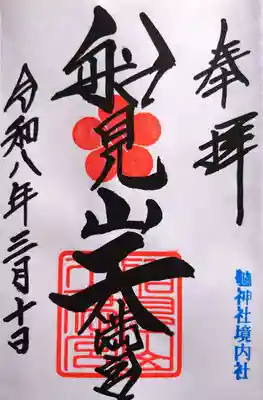 奉拝
船見山天満宮
令和八年三月十日
神社境内社